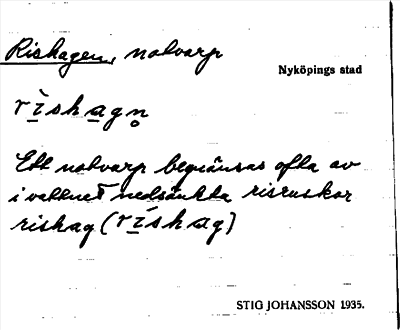 Rishagen, notvarp
Nyköpings stad
rìshagn̥
Ett notvarp begränsas ofta av
i vattnet nedsänkta risruskor
rishag (ríshag)
STIG JOHANSSON 1935.